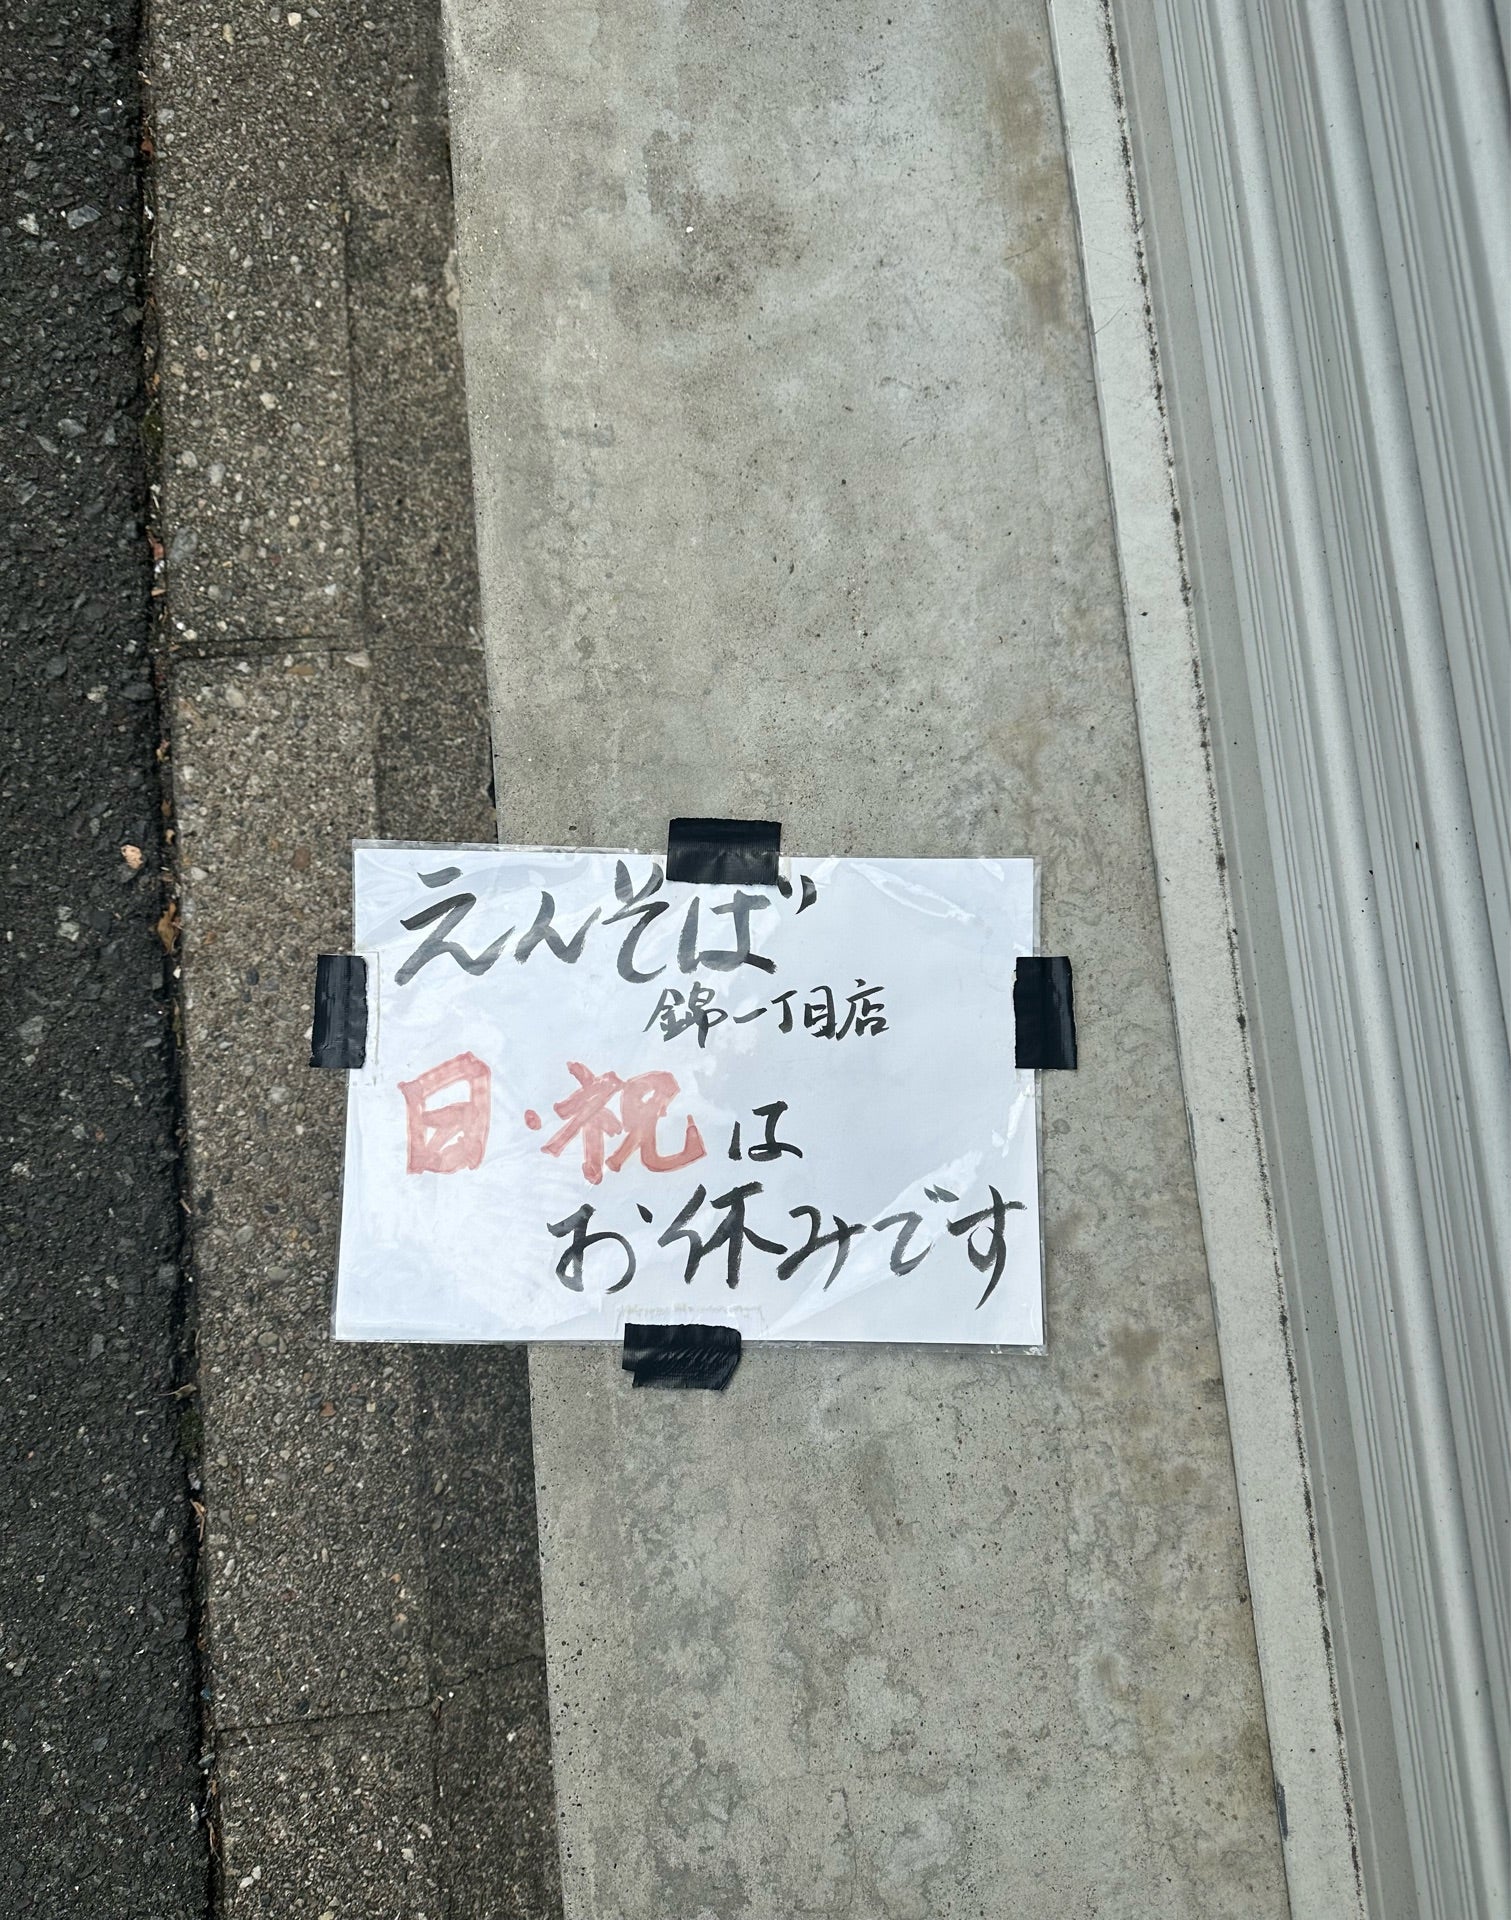 えんそば
錦一丁目店
日・祝は
お休みです